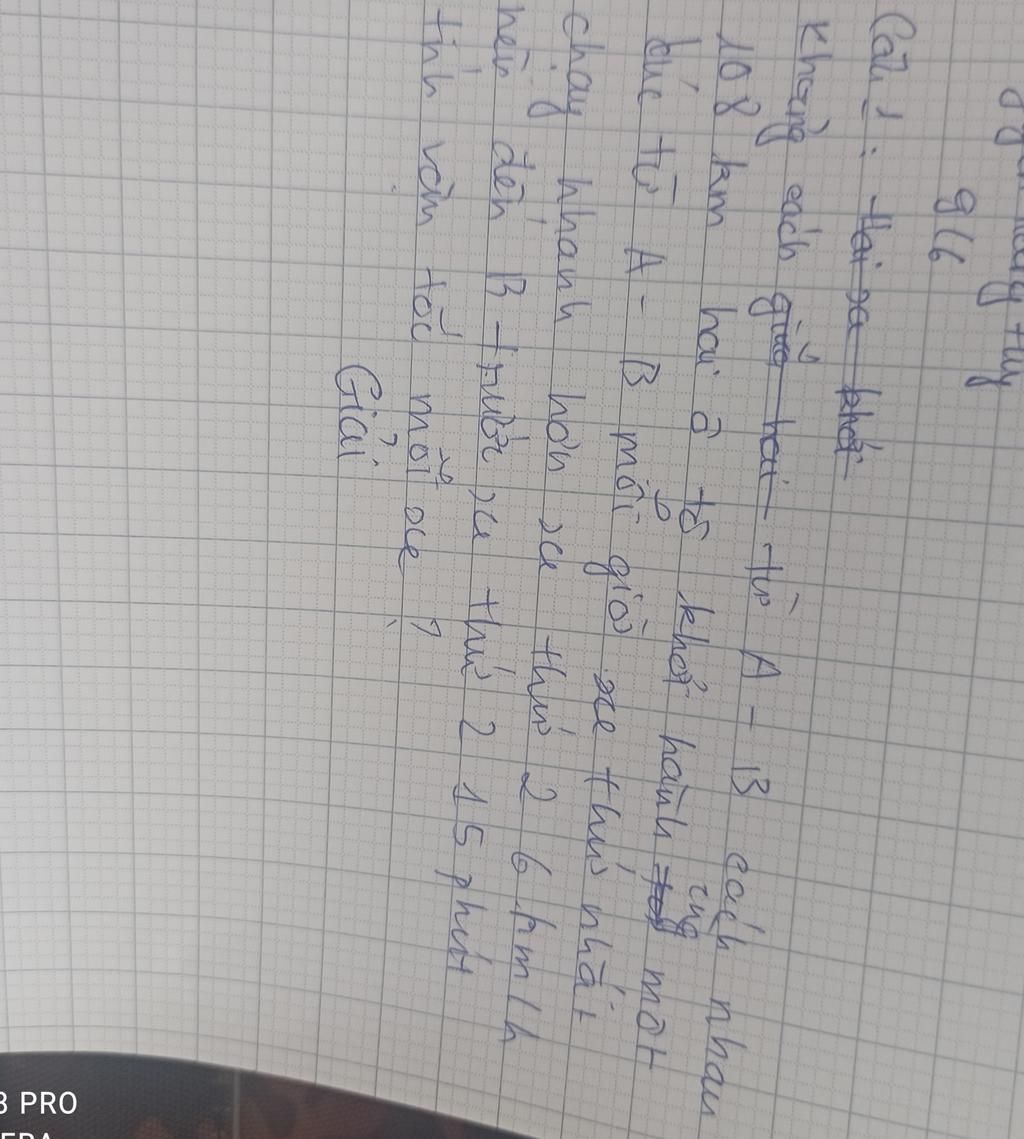 9/6
Câu 1: Hai xe khởi
Khoảng cách giữa hai từ A - B cách nhau
108 km hai ô tô khởi hành cùng một
lúc từ A - B mỗi giờ xe thứ nhất
chạy nhanh hơn xe thứ 2 6 km/h
nên đến B trước xe thứ 2 15 phút
tính vận tốc mỗi xe ?
Giải
3 PRO